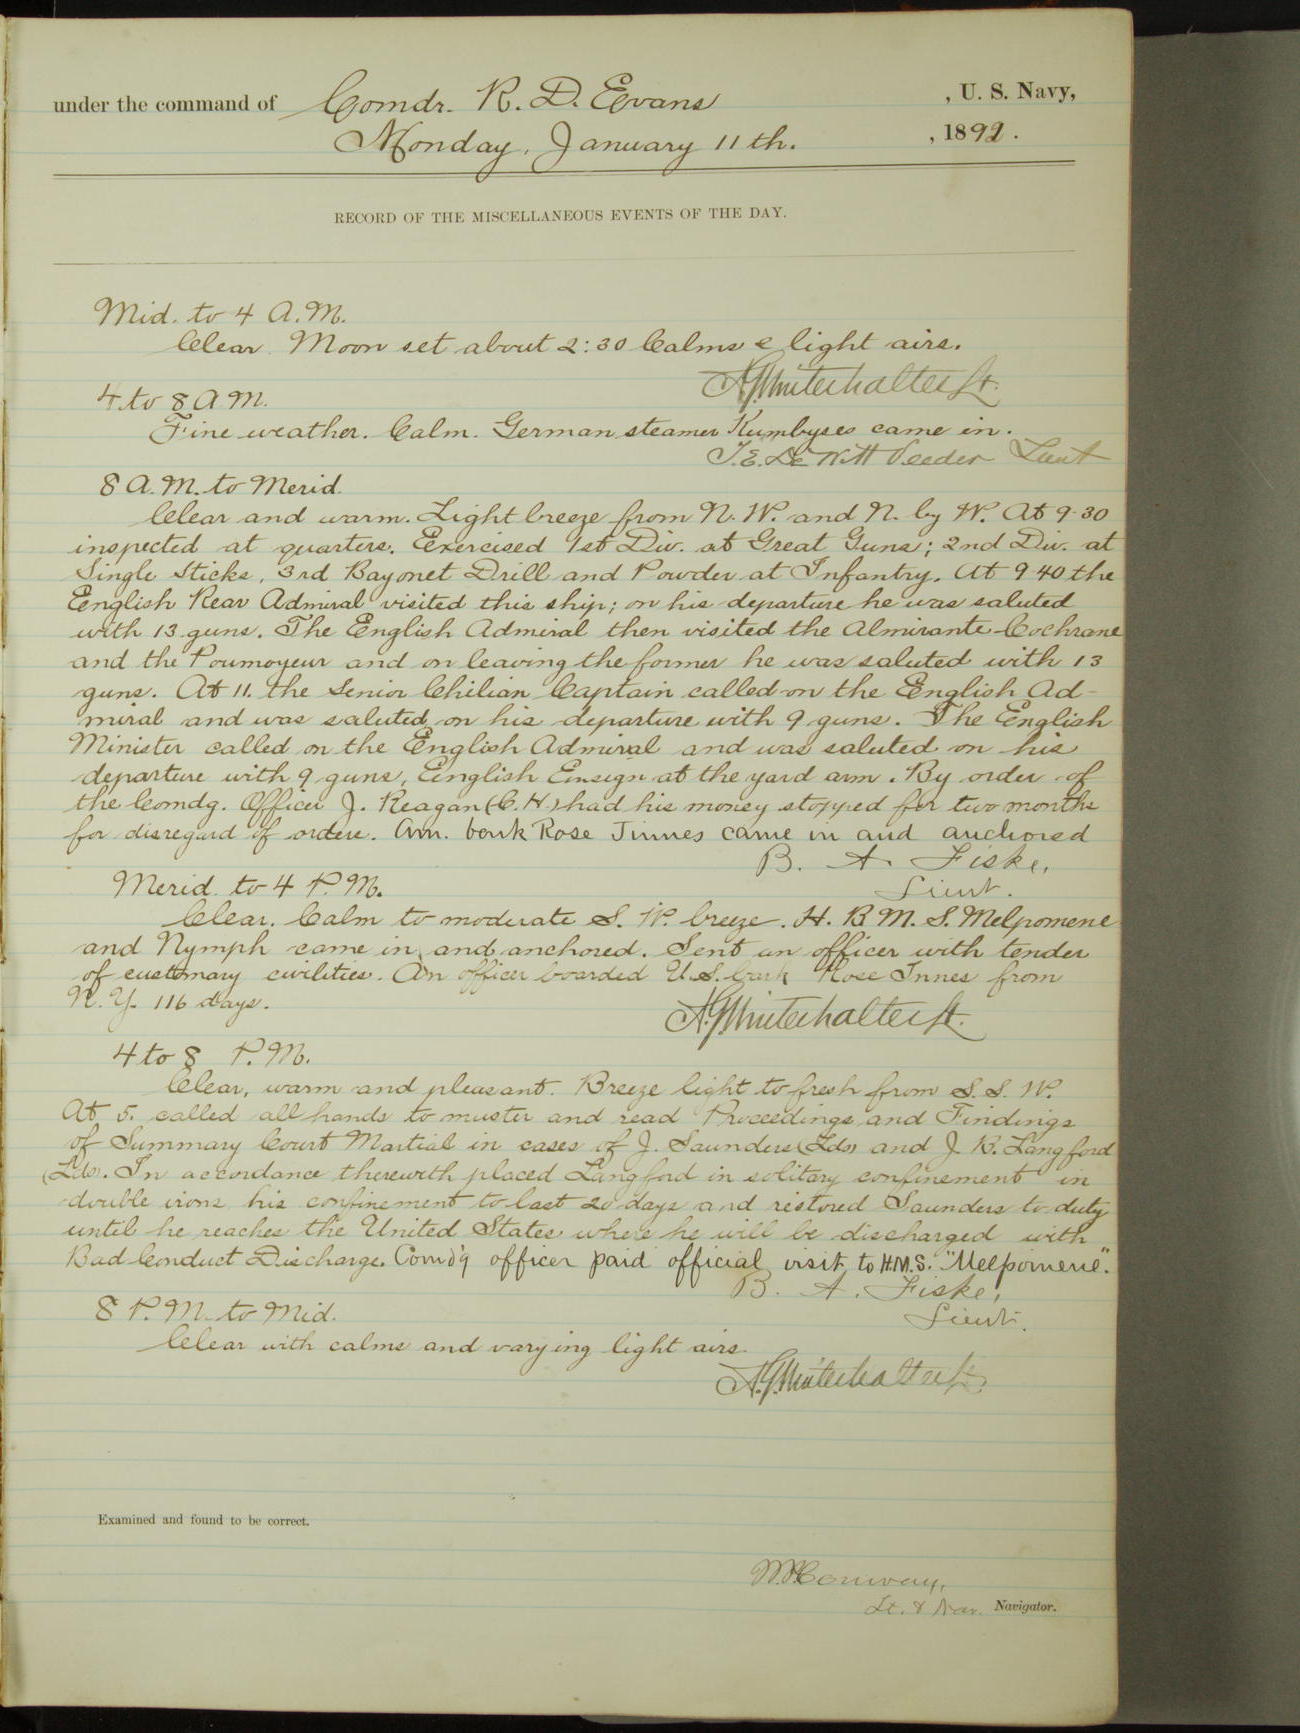 under the command of Comdr. R. D. Evans , U. S. Navy,
Monday, January 11th. , 1892.
RECORD OF THE MISCELLANEOUS EVENTS OF THE DAY.
Mid. to 4 A.M.
Clear. Moon set about 2:30 Calms & light airs.
A.G. Winterhalter Lt.
4 to 8 A M.
Fine weather. Calm. German steamer Kumbyses came in.
T.E. De Witt Veeder Lieut
8 A.M. to Merid.
Clear and warm. Light breeze from N.W. and N. by W. At 9-30
inspected at quarters. Exercised 1st Div. at Great Guns; 2nd Div. at
Single Sticks, 3rd Bayonet Drill and Powder at Infantry. At 9 40 the
English Rear Admiral visited this ship; on his departure he was saluted
with 13 guns. The English Admiral then visited the Almirante Cochrane
and the Poumoyeur and on leaving the former he was saluted with 13
guns. At 11. the Senior Chilian Captain called on the English Ad-
miral and was saluted on his departure with 9 guns. The English
Minister called on the English Admiral and was saluted on his
departure with 9 guns, English Ensign at the yard arm. By order of
the Comdg. Officer J. Reagan (C.H.) had his money stopped for two months
for disregard of orders. Am. bark Rose Innes came in and anchored
B. A. Fiske,
Lieut.
Merid. to 4 P.M.
Clear. Calm to moderate S. W. breeze. H. B M. S. Melpomene
and Nymph came in and anchored. Sent an officer with tender
of customary civilities. An officer boarded U.S. bark Rose Innes from
N. Y. 116 days.
A.G. Winterhalter Lt.
4 to 8 P.M.
Clear, warm and pleasant. Breeze light to fresh from S. S. W.
At 5. called all hands to muster and read Proceedings and Findings
of Summary Court Martial in cases of J. Saunders (Lds) and J. B. Langford
(Lds). In accordance therewith placed Langford in solitary confinement in
double irons his confinement to last 20 days and restored Saunders to duty
until he reaches the United States where he will be discharged with
Bad Conduct Discharge. Comd'g officer paid official visit to H.M.S. "Melpomene".
B. A. Fiske,
Lieut.
8 P.M. to Mid.
Clear with calms and varying light airs.
A.G. Winterhalter Lt.
Examined and found to be correct.
Conway,
Lt. & Nav. Navigator.